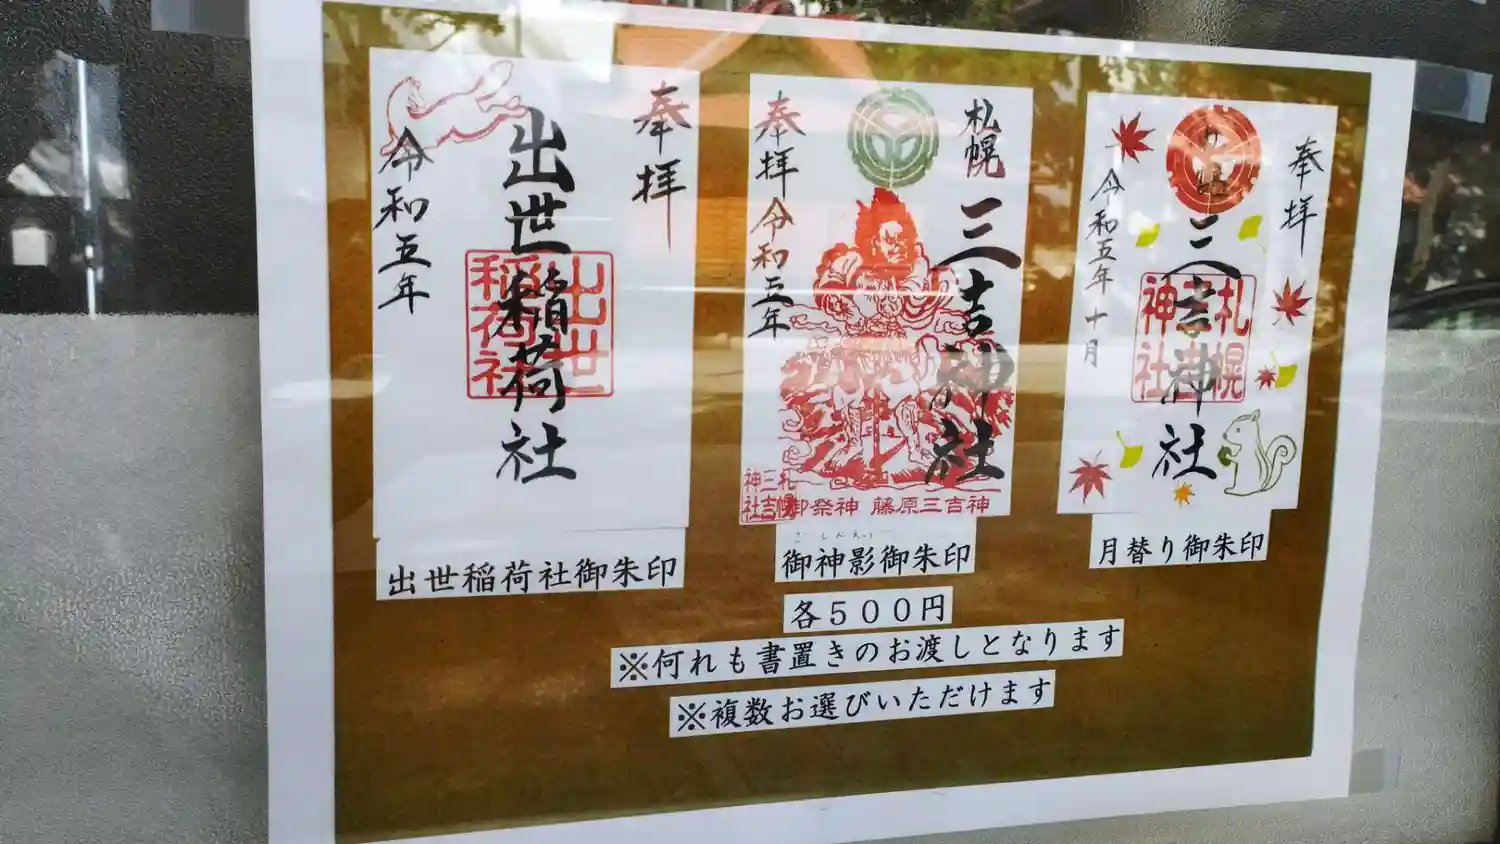 奉拝
出世稲荷社
出世稲荷社
令和五年
出世稲荷社御朱印
札幌
三吉神社
奉拝
令和三年
札幌三吉神社
御祭神 藤原三吉神
ごしんえい
御神影御朱印
奉拝
三吉神社
札幌三吉神社
令和五年十月
月替り御朱印
各500円
※何れも書置きのお渡しとなります
※複数お選びいただけます